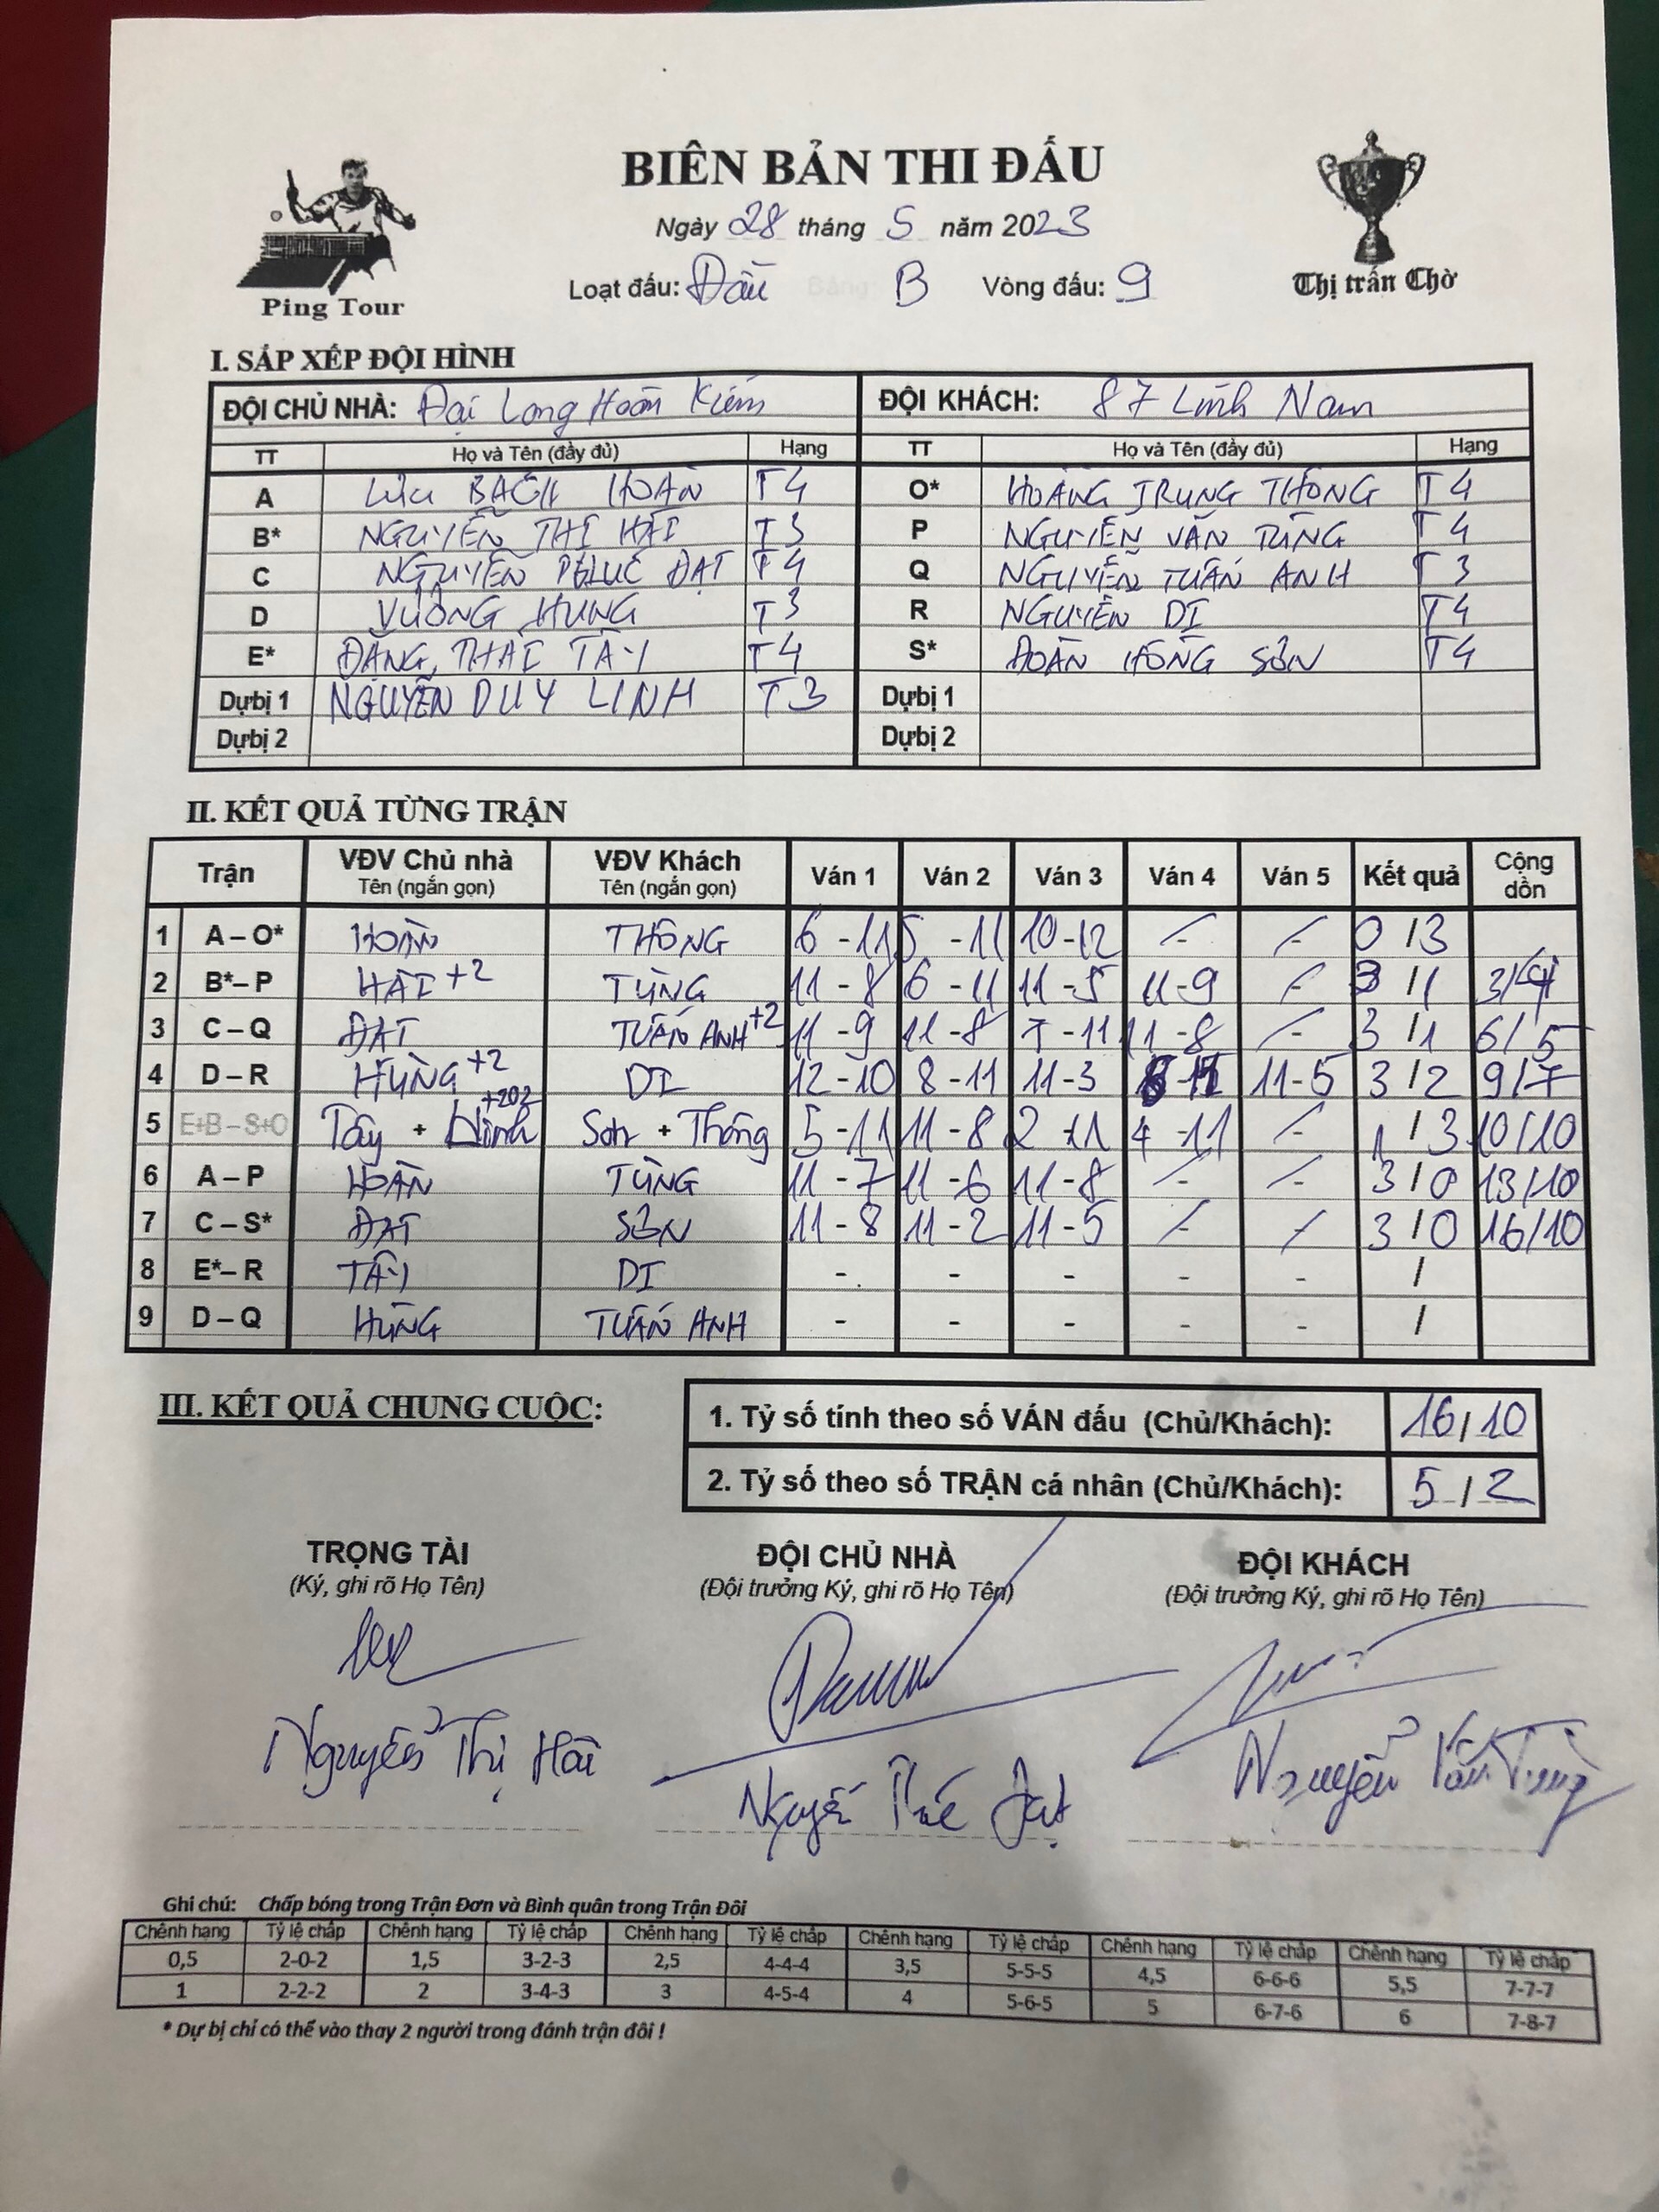 BIÊN BẢN THI ĐẤU
Ngày 28 tháng 5 năm 2023
Loạt đấu: Đầu Bảng B Vòng đấu: 9
Ping Tour
Thị trấn Chờ
I. SẮP XẾP ĐỘI HÌNH
ĐỘI CHỦ NHÀ: Đại Long Hoàn Kiếm ĐỘI KHÁCH: 87 Lĩnh Nam
TT Họ và Tên (đầy đủ) Hạng TT Họ và Tên (đầy đủ) Hạng
A LƯU BÁCH HOÀN T4 O* HOÀNG TRUNG THÔNG T4
B* NGUYỄN THỊ HẢI T3 P NGUYỄN VĂN TÙNG T4
C NGUYỄN PHÚC ĐẠT T4 Q NGUYỄN TUẤN ANH T3
D VƯƠNG HÙNG T3 R NGUYỄN DI T4
E* ĐẶNG THÁI TÂY T4 S* ĐOÀN HỒNG SƠN T4
Dự bị 1 NGUYỄN DUY LINH T3 Dự bị 1
Dự bị 2 Dự bị 2
II. KẾT QUẢ TỪNG TRẬN
Trận VĐV Chủ nhà VĐV Khách Ván 1 Ván 2 Ván 3 Ván 4 Ván 5 Kết quả Cộng dồn
Tên (ngắn gọn) Tên (ngắn gọn)
1 A – O* HOÀN THÔNG 6 - 11 5 - 11 10 - 12 - - 0 / 3
2 B* – P HẢI +2 TÙNG 11 - 8 6 - 11 11 - 5 11 - 9 - 3 / 1 3/4
3 C – Q ĐẠT TUẤN ANH +2 11 - 9 11 - 8 7 - 11 11 - 8 - 3 / 1 6/5
4 D – R HÙNG +2 DI 12 - 10 8 - 11 11 - 3 11 - 5 3 / 2 9/7
5 E+B – S+O Tây + Linh +202 Sơn + Thông 5 - 11 11 - 8 2 - 11 4 - 11 - 1 / 3 10/10
6 A – P HOÀN TÙNG 11 - 7 11 - 6 11 - 8 - - 3 / 0 13/10
7 C – S* ĐẠT SƠN 11 - 8 11 - 2 11 - 5 - - 3 / 0 16/10
8 E* – R TÂY DI - - - - - /
9 D – Q HÙNG TUẤN ANH - - - - - /
III. KẾT QUẢ CHUNG CUỘC:
1. Tỷ số tính theo số VÁN đấu (Chủ/Khách): 16 / 10
2. Tỷ số theo số TRẬN cá nhân (Chủ/Khách): 5 / 2
TRỌNG TÀI ĐỘI CHỦ NHÀ ĐỘI KHÁCH
(Ký, ghi rõ Họ Tên) (Đội trưởng Ký, ghi rõ Họ Tên) (Đội trưởng Ký, ghi rõ Họ Tên)
Nguyễn Thị Hải Nguyễn Phúc Đạt Nguyễn Văn Tùng
Ghi chú: Chấp bóng trong Trận Đơn và Bình quân trong Trận Đôi
Chênh hạng Tỷ lệ chấp Chênh hạng Tỷ lệ chấp Chênh hạng Tỷ lệ chấp Chênh hạng Tỷ lệ chấp Chênh hạng Tỷ lệ chấp Chênh hạng Tỷ lệ chấp
0,5 2-0-2 1,5 3-2-3 2,5 4-4-4 3,5 5-5-5 4,5 6-6-6 5,5 7-7-7
1 2-2-2 2 3-4-3 3 4-5-4 4 5-6-5 5 6-7-6 6 7-8-7
* Dự bị chỉ có thể vào thay 2 người trong đánh trận đôi !